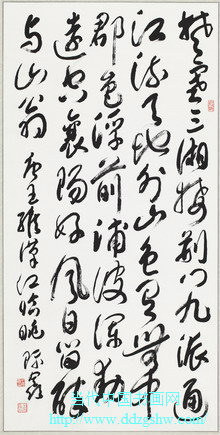 楚塞三湘接荆门九派通
江流天地外山色有無中
郡邑浮前浦波澜動
遠空襄陽好風日留醉
与山翁 唐王維漢江臨眺
当代中国书画网
www.ddzgshw.com